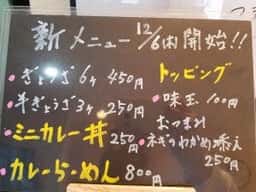 新メニュー 12/6(内)開始!!
・ぎょうざ 6ヶ 450円
・半ぎょうざ 3ヶ 250円
・ミニカレー丼 250円
・カレーらーめん 800円
トッピング
・味玉 100円
おつまみ
・ネギのわかめ添え
250円